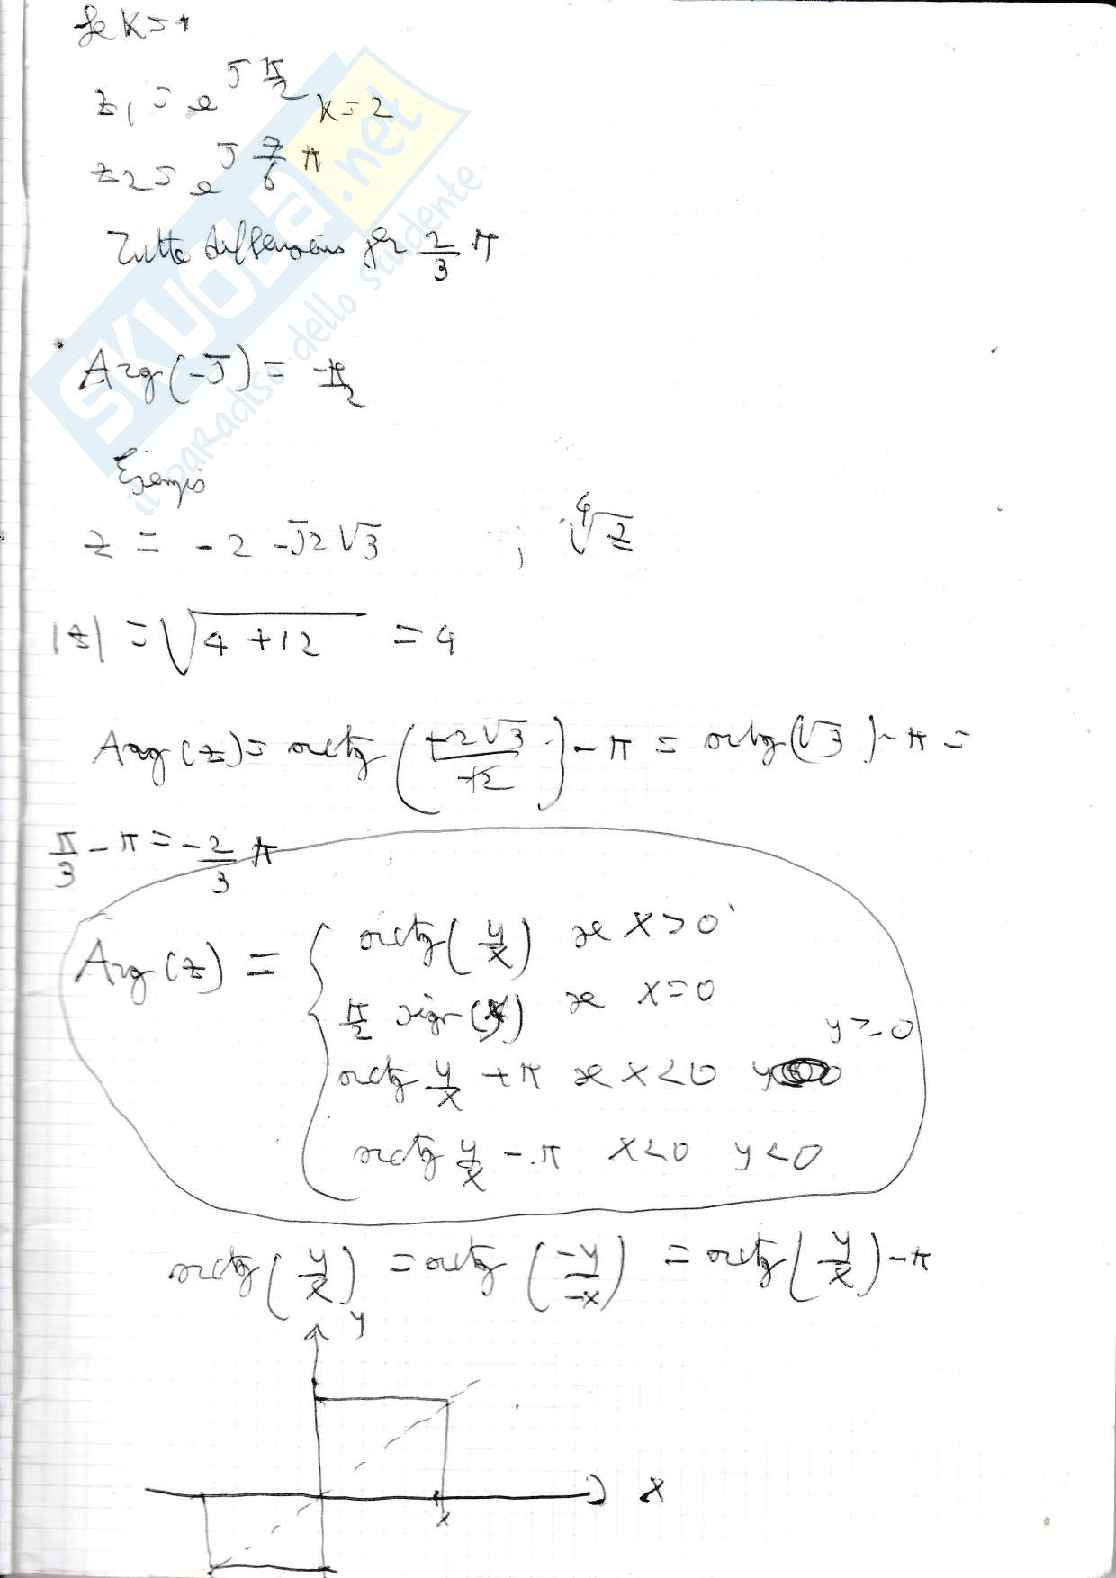 Se K=1
z1 = e^(J π/2) K=2
z2 = e^(J 7/6 π)
Tutte differenziano per 2/3 π
Arg(-J) = -π/2
Esempio
z = -2 -J2√3 ; ∜z
|z| = √(4+12) = 4
Arg(z) = arctg(+2√3/+2) - π = arctg(√3) - π =
π/3 - π = -2/3 π
Arg(z) = { arctg(y/x) se x>0
π/2 sign(y) se x=0
y>=0
arctg y/x + π se x<0 y
arctg y/x - π x<0 y<0
arctg(y/x) = arctg(-y/-x) = arctg(y/x) - π
y
x
x
SKUOLA.net
il paradiso dello studente